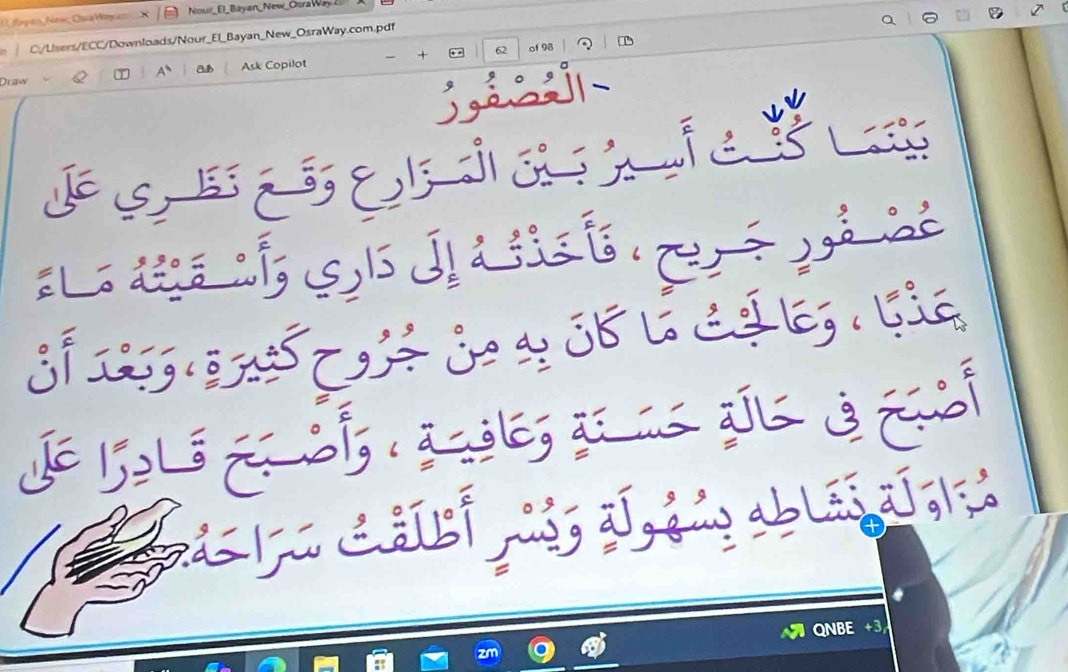 Nour_El_Bayan_New_OsraWay.c
C:/Users/ECC/Downloads/Nour_El_Bayan_New_OsraWay.com.pdf
Draw Ask Copilot 62 of 98
- العُصْفُورُ
بَيْنَمَا كُنْتُ أَسِيرُ بَيْنَ الْمَزَارِعِ وَقَعَ نَظَرِي عَلَى
عُصْفُورٍ جَرِيحٍ ، فَأَخَذْتُهُ إِلَى دَارِي وَأَسْقَيْتُهُ مَاءً
عَذْبًا ، وَعَالَجْتُ مَا كَانَ بِهِ مِنْ جُرُوحٍ كَثِيرَةٍ ، وَبَعْدَ أَنْ
أَصْبَحَ فِى حَالَةٍ حَسَنَةٍ وَعَافِيَةٍ ، وَأَصْبَحَ قَادِرًا عَلَى
مُزَاوَلَةِ نَشَاطِهِ بِسُهُولَةٍ وَيُسْرٍ أَطْلَقْتُ سَرَاحَهُ.
QNBE +3
zm